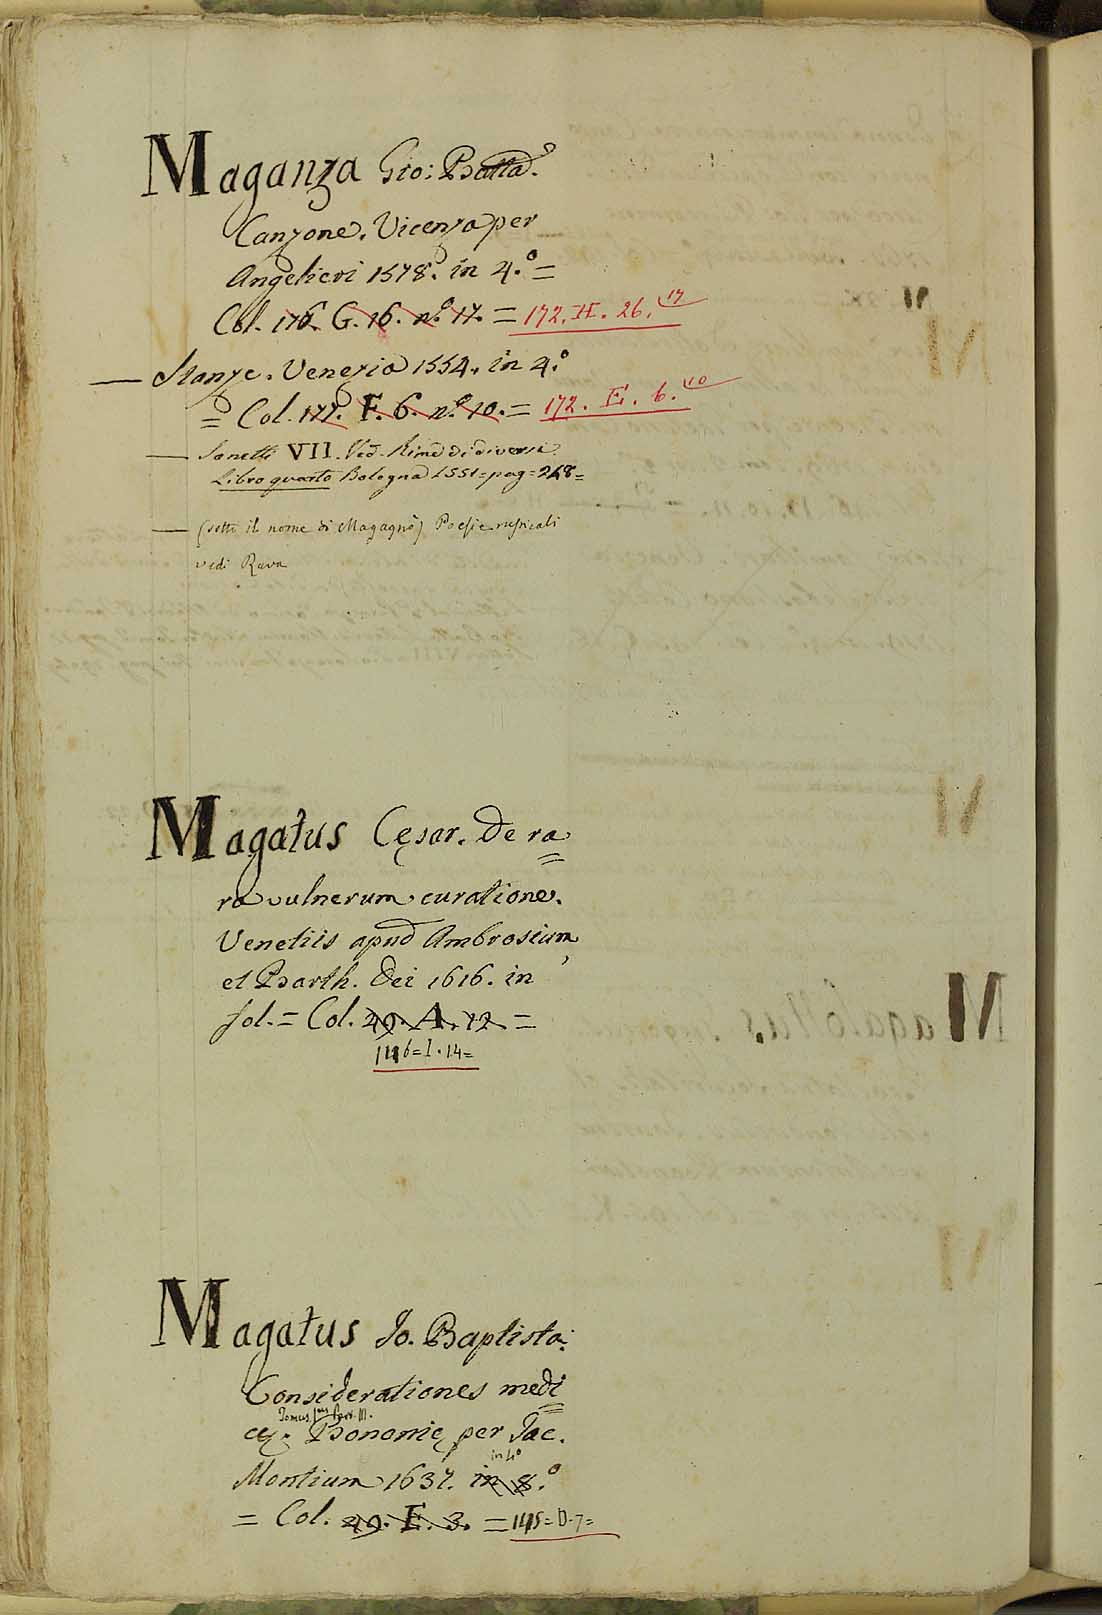 Maganza Gio: Batta.
Canzone. Vicenza per
Angelieri 1578. in 4.º =
Col. 176. G. 16. nº 17. = 172. H. 26. 17
— Stanze. Venezia 1554. in 4.º
= Col. 177. F. 6. nº 10. = 172. E. 6. 10
— Sonetti VII. Ved. Rime di diversi
Libro quarto Bologna 1551 = pag = 268 =
— (sotto il nome di Magagnò) Poesie rusticali
vedi Rava
Magatus Cęsar. De ra=
ra vulnerum curatione.
Venetiis apud Ambrosium,
et Barth. Dei 1616. in
fol. = Col. 49. A. 12 =
146 = I. 14 =
Magatus Jo. Baptista.
Considerationes medi=
Tomus Pars III.
cę. Bononię per Jac.
in 4º
Montium 1637. in 8.º
= Col. 49. E. 3. = 145 = D. 7 =